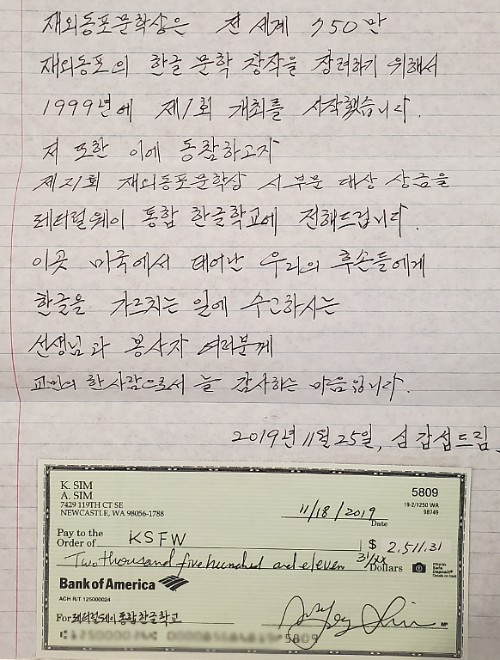 재외동포문학상은 전 세계 750만
재외동포의 한글 문학 창작을 장려하기 위해서
1999년에 제1회 개최를 시작했습니다.
저 또한 이에 동참하고자
제21회 재외동포문학상 시부문 대상 상금을
페더럴웨이 통합 한글학교에 전해드립니다.
이곳 미국에서 태어난 우리의 후손들에게
한글을 가르치는 일에 수고하시는
선생님과 봉사자 여러분께
교민의 한 사람으로서 늘 감사하는 마음입니다.
2019년 11월 25일, 심갑섭드림.
K. SIM
A. SIM
7429 119TH CT SE
NEWCASTLE, WA 98056-1788
5809
19-2/1250 WA
98749
11/18/2019
Date
Pay to the
Order of KSFW $ 2,511.31
Two thousand five hundred and eleven 31/xx Dollars
Bank of America
ACH R/T 125000024
For 페더럴웨이통합한글학교
5809